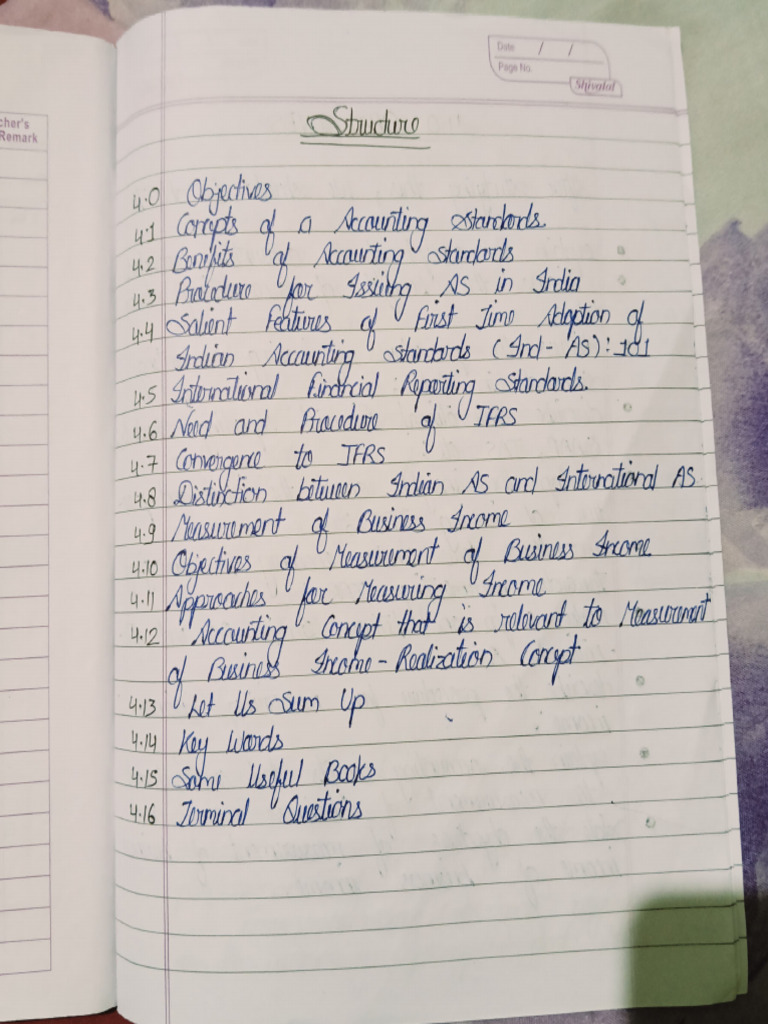 cher's
Remark
Date / /
Page No.
Shivalal
Structure
4.0 Objectives
4.1 Concepts of a Accounting Standards.
4.2 Benefits of Accounting Standards
4.3 Procedure for Issuing AS in India
4.4 Salient Features of First Time Adoption of
Indian Accounting Standards (Ind-AS):101
4.5 International Financial Reporting Standards.
4.6 Need and Procedure of IFRS
4.7 Convergence to IFRS
4.8 Distinction between Indian AS and International AS
4.9 Measurement of Business Income
4.10 Objectives of Measurement of Business Income
4.11 Approaches for Measuring Income
4.12 Accounting Concept that is relevant to Measurement
of Business Income-Realization Concept
4.13 Let Us Sum Up
4.14 Key Words
4.15 Some Useful Books
4.16 Terminal Questions